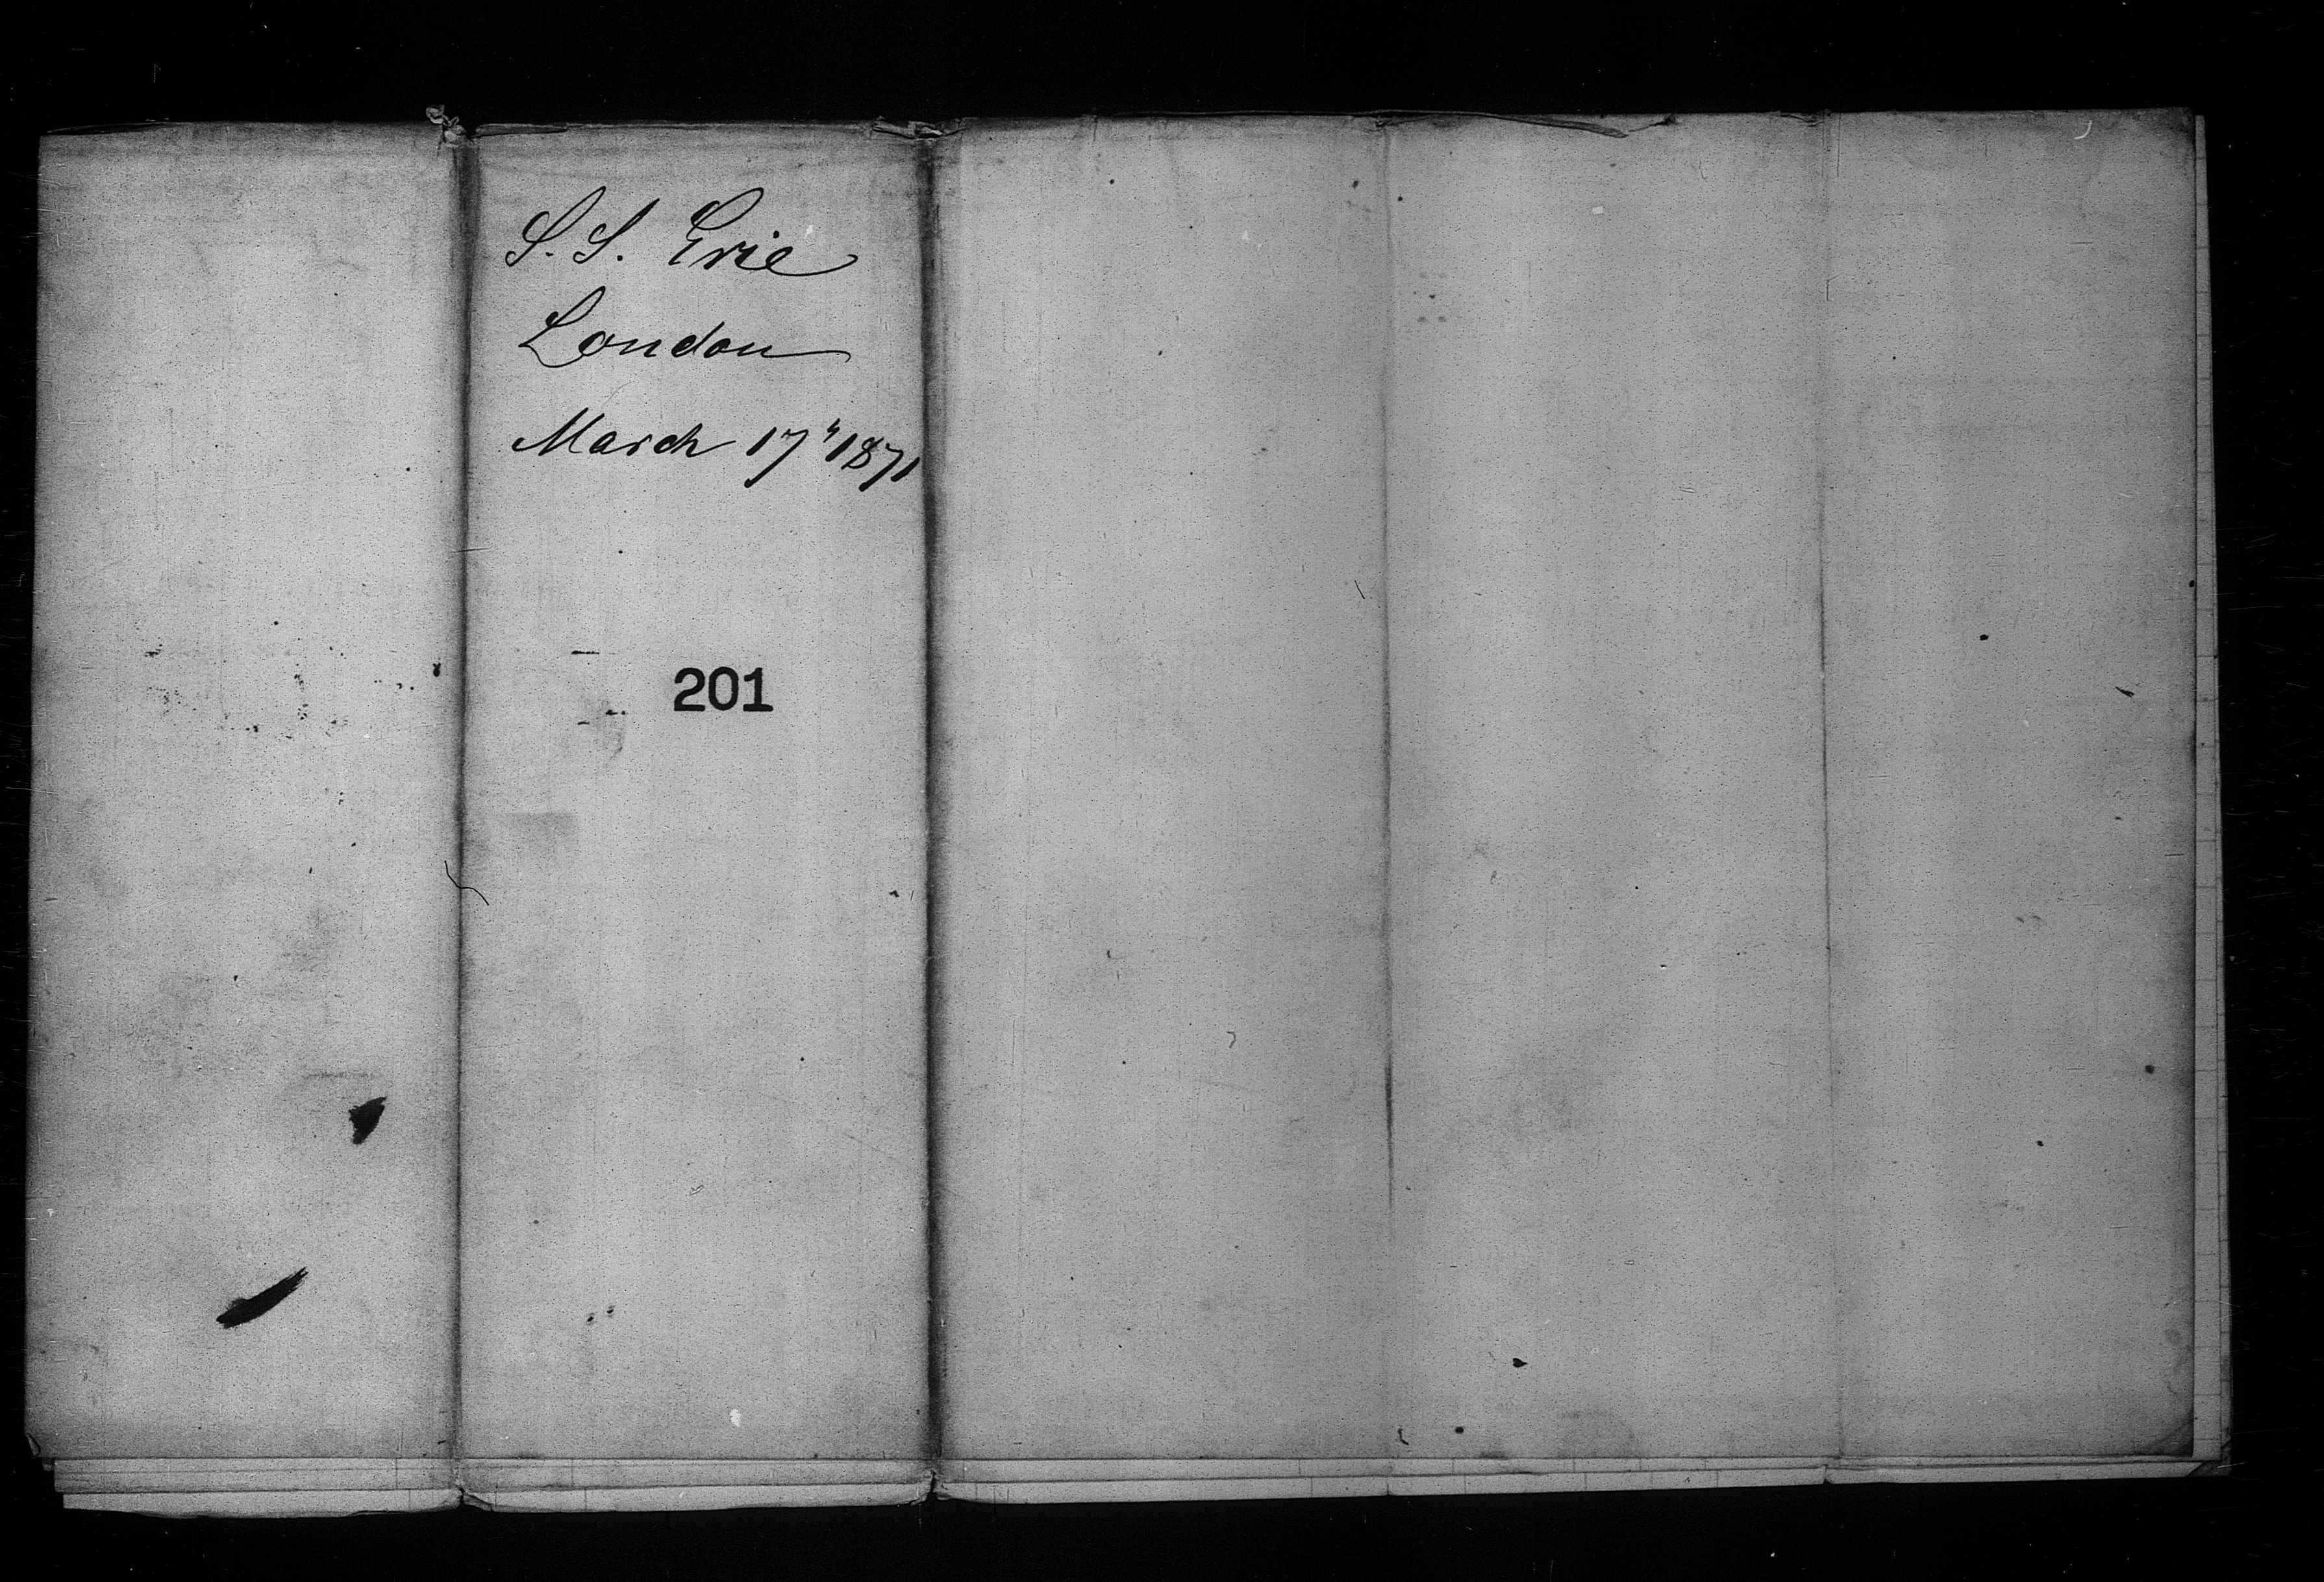 S.S. Erie
London
March 17" 1871
201